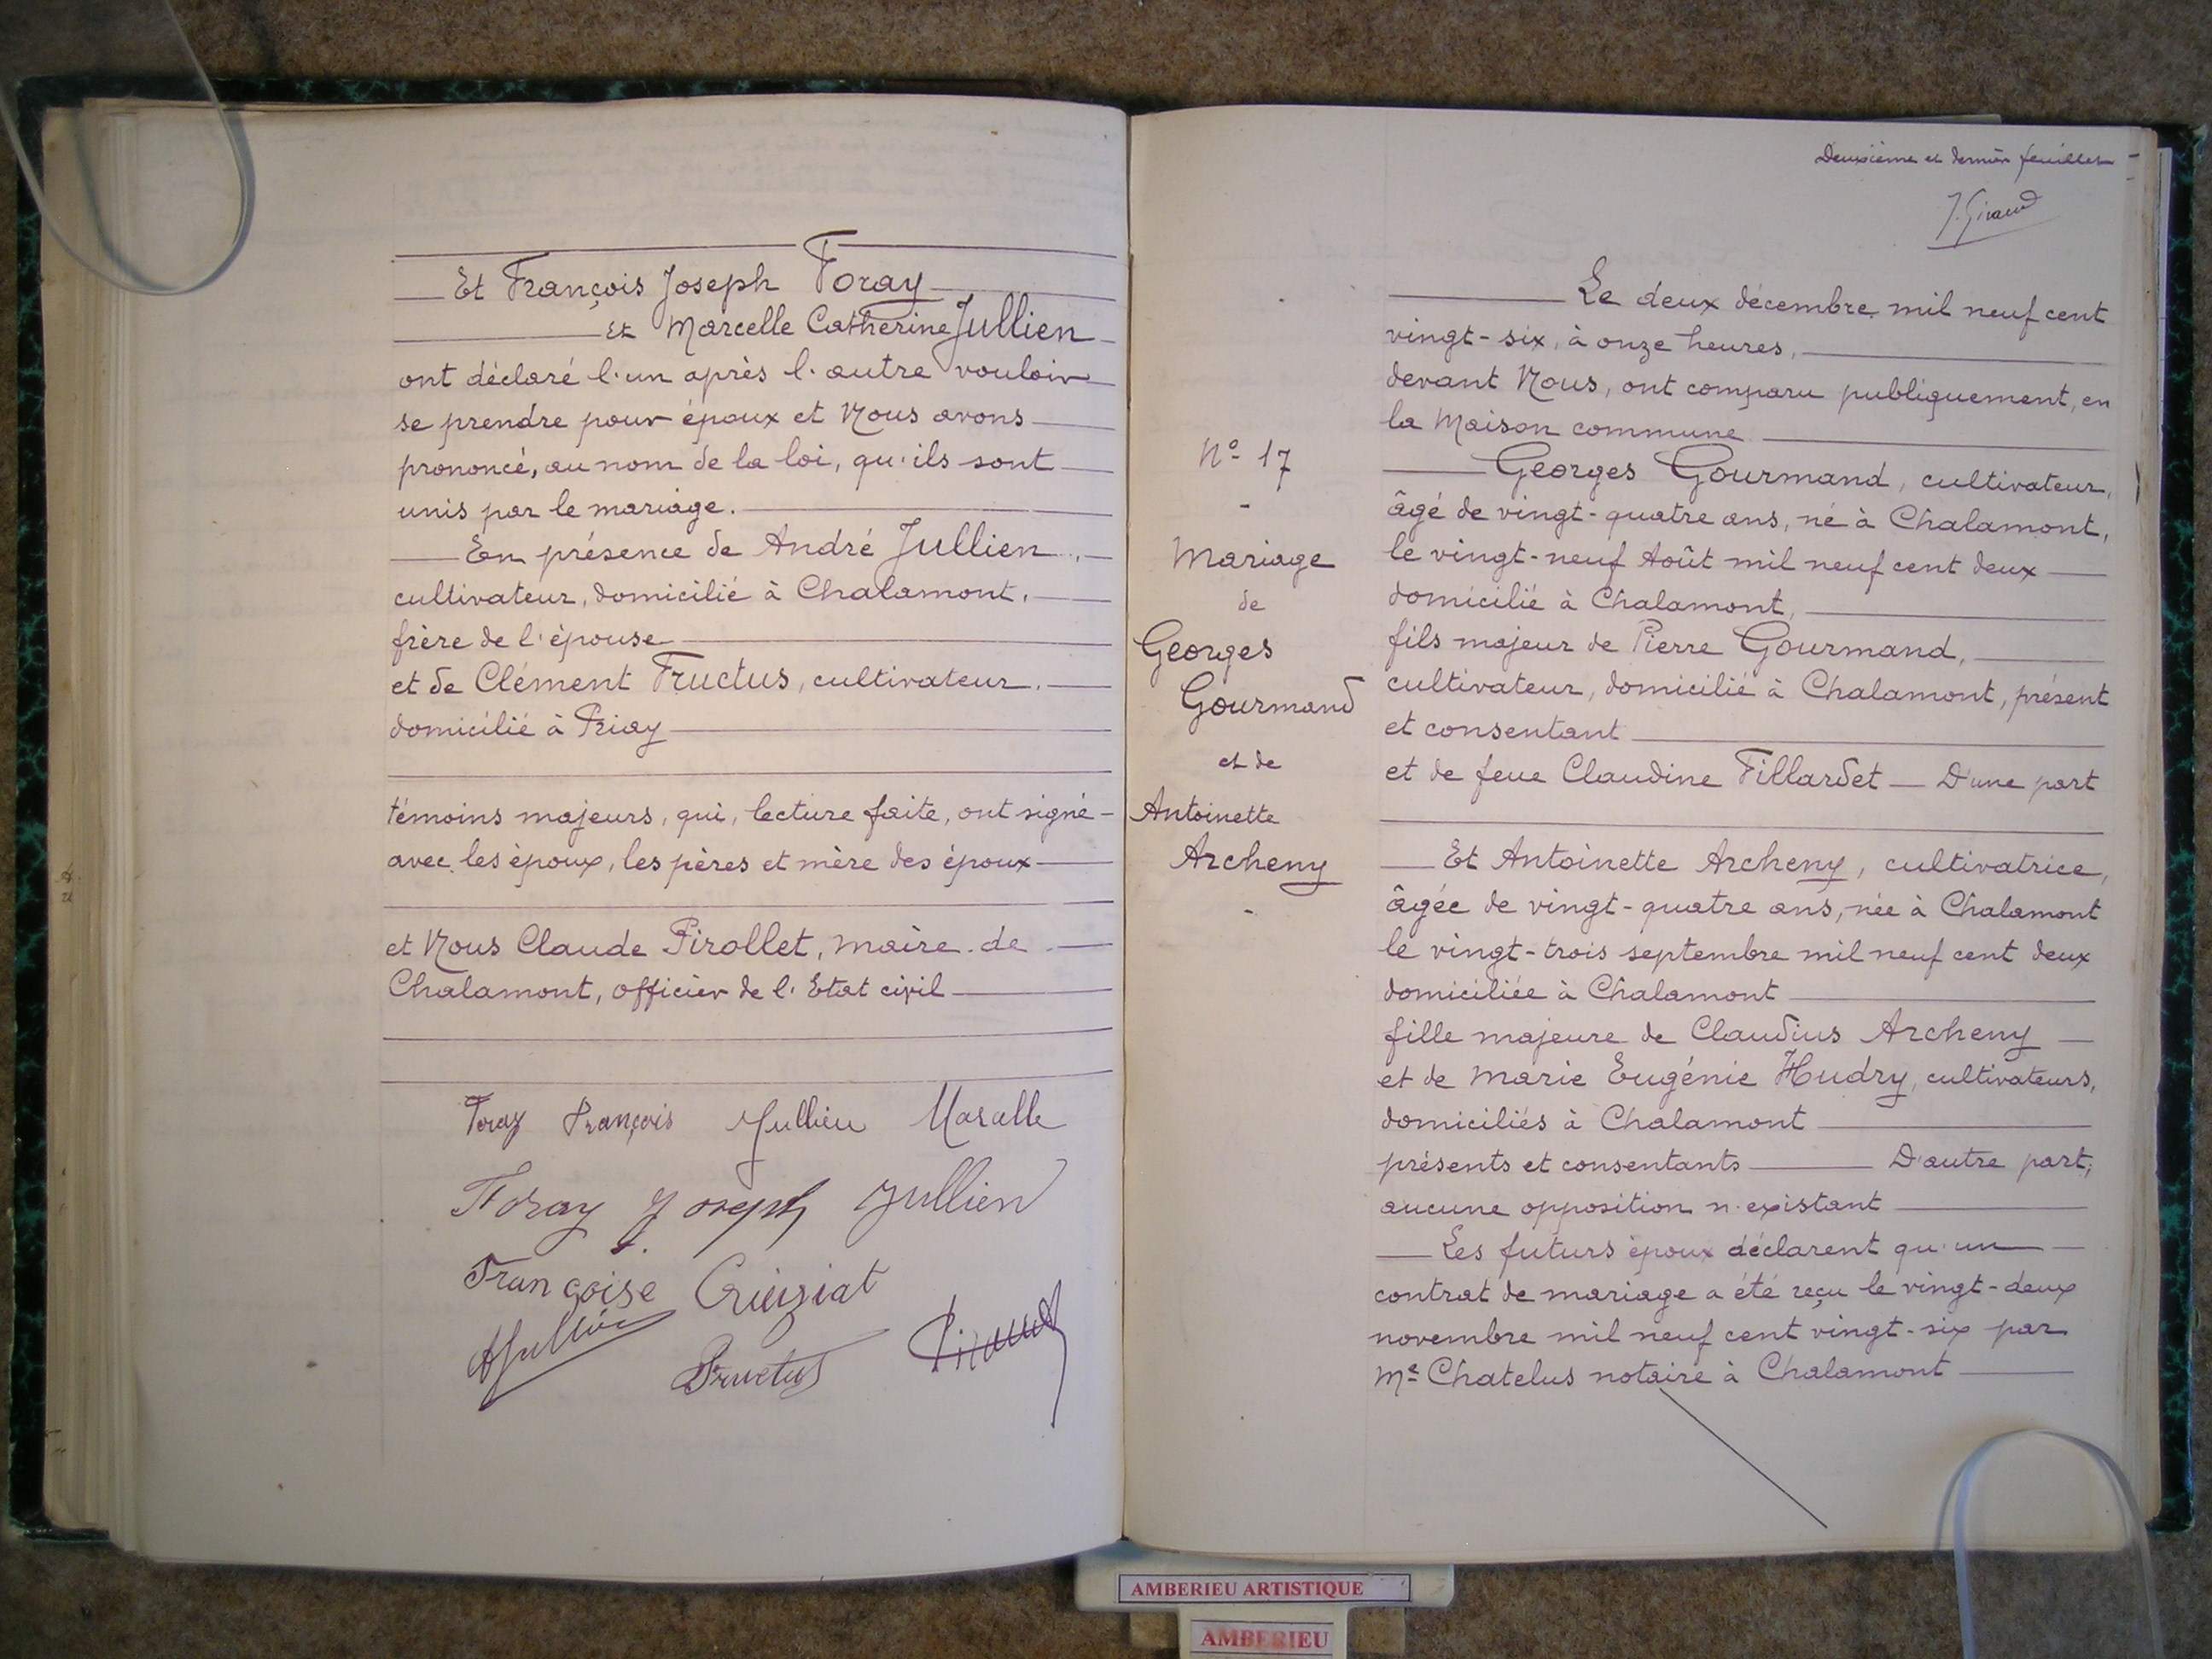 Et François Joseph Foray
et Marcelle Catherine Jullien
ont déclaré l'un après l'autre vouloir
se prendre pour époux et Nous avons
prononcé, au nom de la loi, qu'ils sont
unis par le mariage.
En présence de André Jullien,
cultivateur, domicilié à Chalamont,
frère de l'épouse
et de Clément Fructus, cultivateur,
domicilié à Priay
témoins majeurs, qui, lecture faite, ont signé
avec les époux, les pères et mère des époux
et Nous Claude Pirollet, maire de
Chalamont, officier de l'Etat civil
Foray François Jullien
Foray Joseph Jullien
Françoise Cruiziat
AJullien
Fructus
Deuxième et dernier feuillet
J. Giraud
N° 17
-
Mariage
de
Georges
Gourmand
et de
Antoinette
Archeny
-
Le deux décembre mil neuf cent
vingt-six, à onze heures,
devant Nous, ont comparu publiquement, en
la Maison commune
Georges Gourmand, cultivateur,
âgé de vingt-quatre ans, né à Chalamont,
le vingt-neuf Août mil neuf cent deux
domicilié à Chalamont,
fils majeur de Pierre Gourmand,
cultivateur, domicilié à Chalamont, présent
et consentant
et de feue Claudine Fillardet — D'une part
Et Antoinette Archeny, cultivatrice,
âgée de vingt-quatre ans, née à Chalamont
le vingt-trois septembre mil neuf cent deux
domiciliée à Chalamont
fille majeure de Claudius Archeny
et de Marie Eugénie Hudry, cultivateurs,
domiciliés à Chalamont
présents et consentants — D'autre part;
aucune opposition n'existant
Les futurs époux déclarent qu'un
contrat de mariage a été reçu le vingt-deux
novembre mil neuf cent vingt-six par
Me Chatelus notaire à Chalamont
AMBERIEU ARTISTIQUE
AMBERIEU